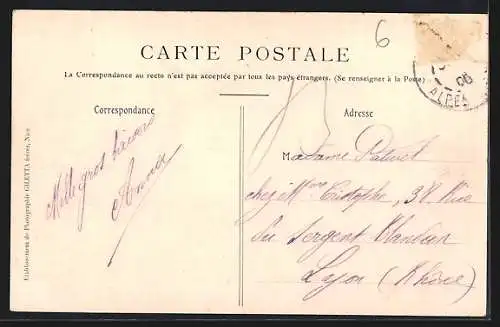 6
CARTE POSTALE
La Correspondance au recto n'est pas acceptée par tous les pays étrangers. (Se renseigner à la Poste)
Correspondance
Mille gros baisers
Adresse
Madame
chez Mme Cristophe, 37 Rue
Du Sergent Blandan
Lyon (Rhône)
06
ALPES
Etablissement de Photographie GILETTA frères, Nice